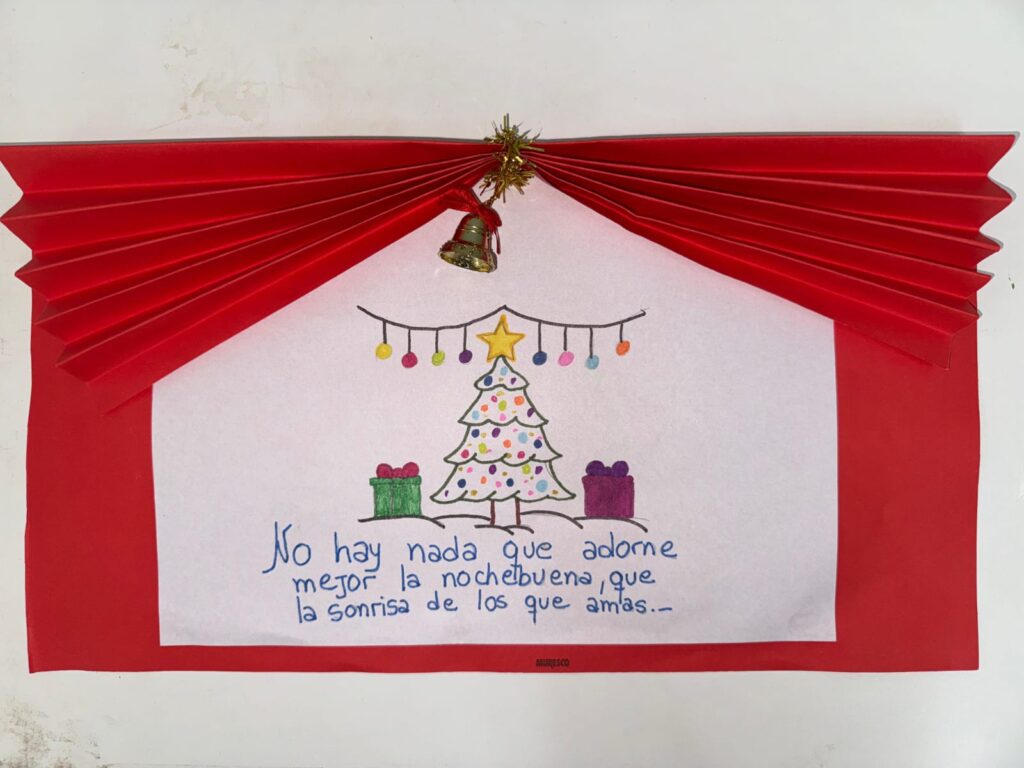 No hay nada que adorne
mejor la nochebuena, que
la sonrisa de los que amas.-
MURESCO